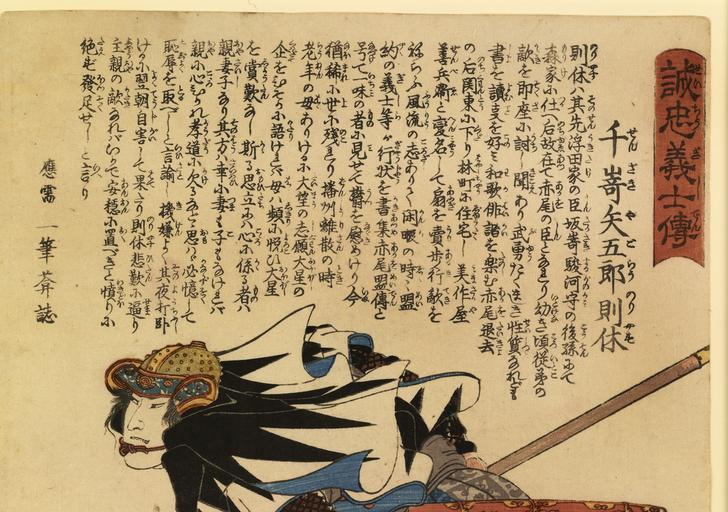 誠忠義士傳
千嵜矢五郎則休
則休ハ其先浮田家の臣坂嵜駿河守の後孫にて
森家に仕へ后故在て赤尾の臣となる幼き頃従弟の
敵を即座に討しと聞あり武勇たくましき性質なれども
書を讀支を好ミ和歌俳諧を楽む赤尾退去
の后関東に下り林町に住宅し美作屋
善兵衞と変名して扇を賣歩行敵を
祢らふ風流の志ありて閑暇の時ハ盟
約の義士等が行状を書集赤尾盟傳と
号て一味の者に見せて欝を慰めけり今
猶稀に世に残れり播州離散の時
老年の母ありけるに大星の志願大星の
企をひそかに語けれバ母ハ頻に悦び大星
を賞歎し斯る思立にハ心に係る者ハ
親妻子なり其方ハ幸に妻も子もなけれバ
親に心ひかれ孝道に欠るなど思ふべからず必憶して
恥辱を取べからずと言諭し機嫌よく其夜打臥
ける翌朝自害して果たり則休悲歎に
主親の敵なれバいかで安穏に置べきと憤りに
絶ず發足せしと言り
應需　一筆菴誌